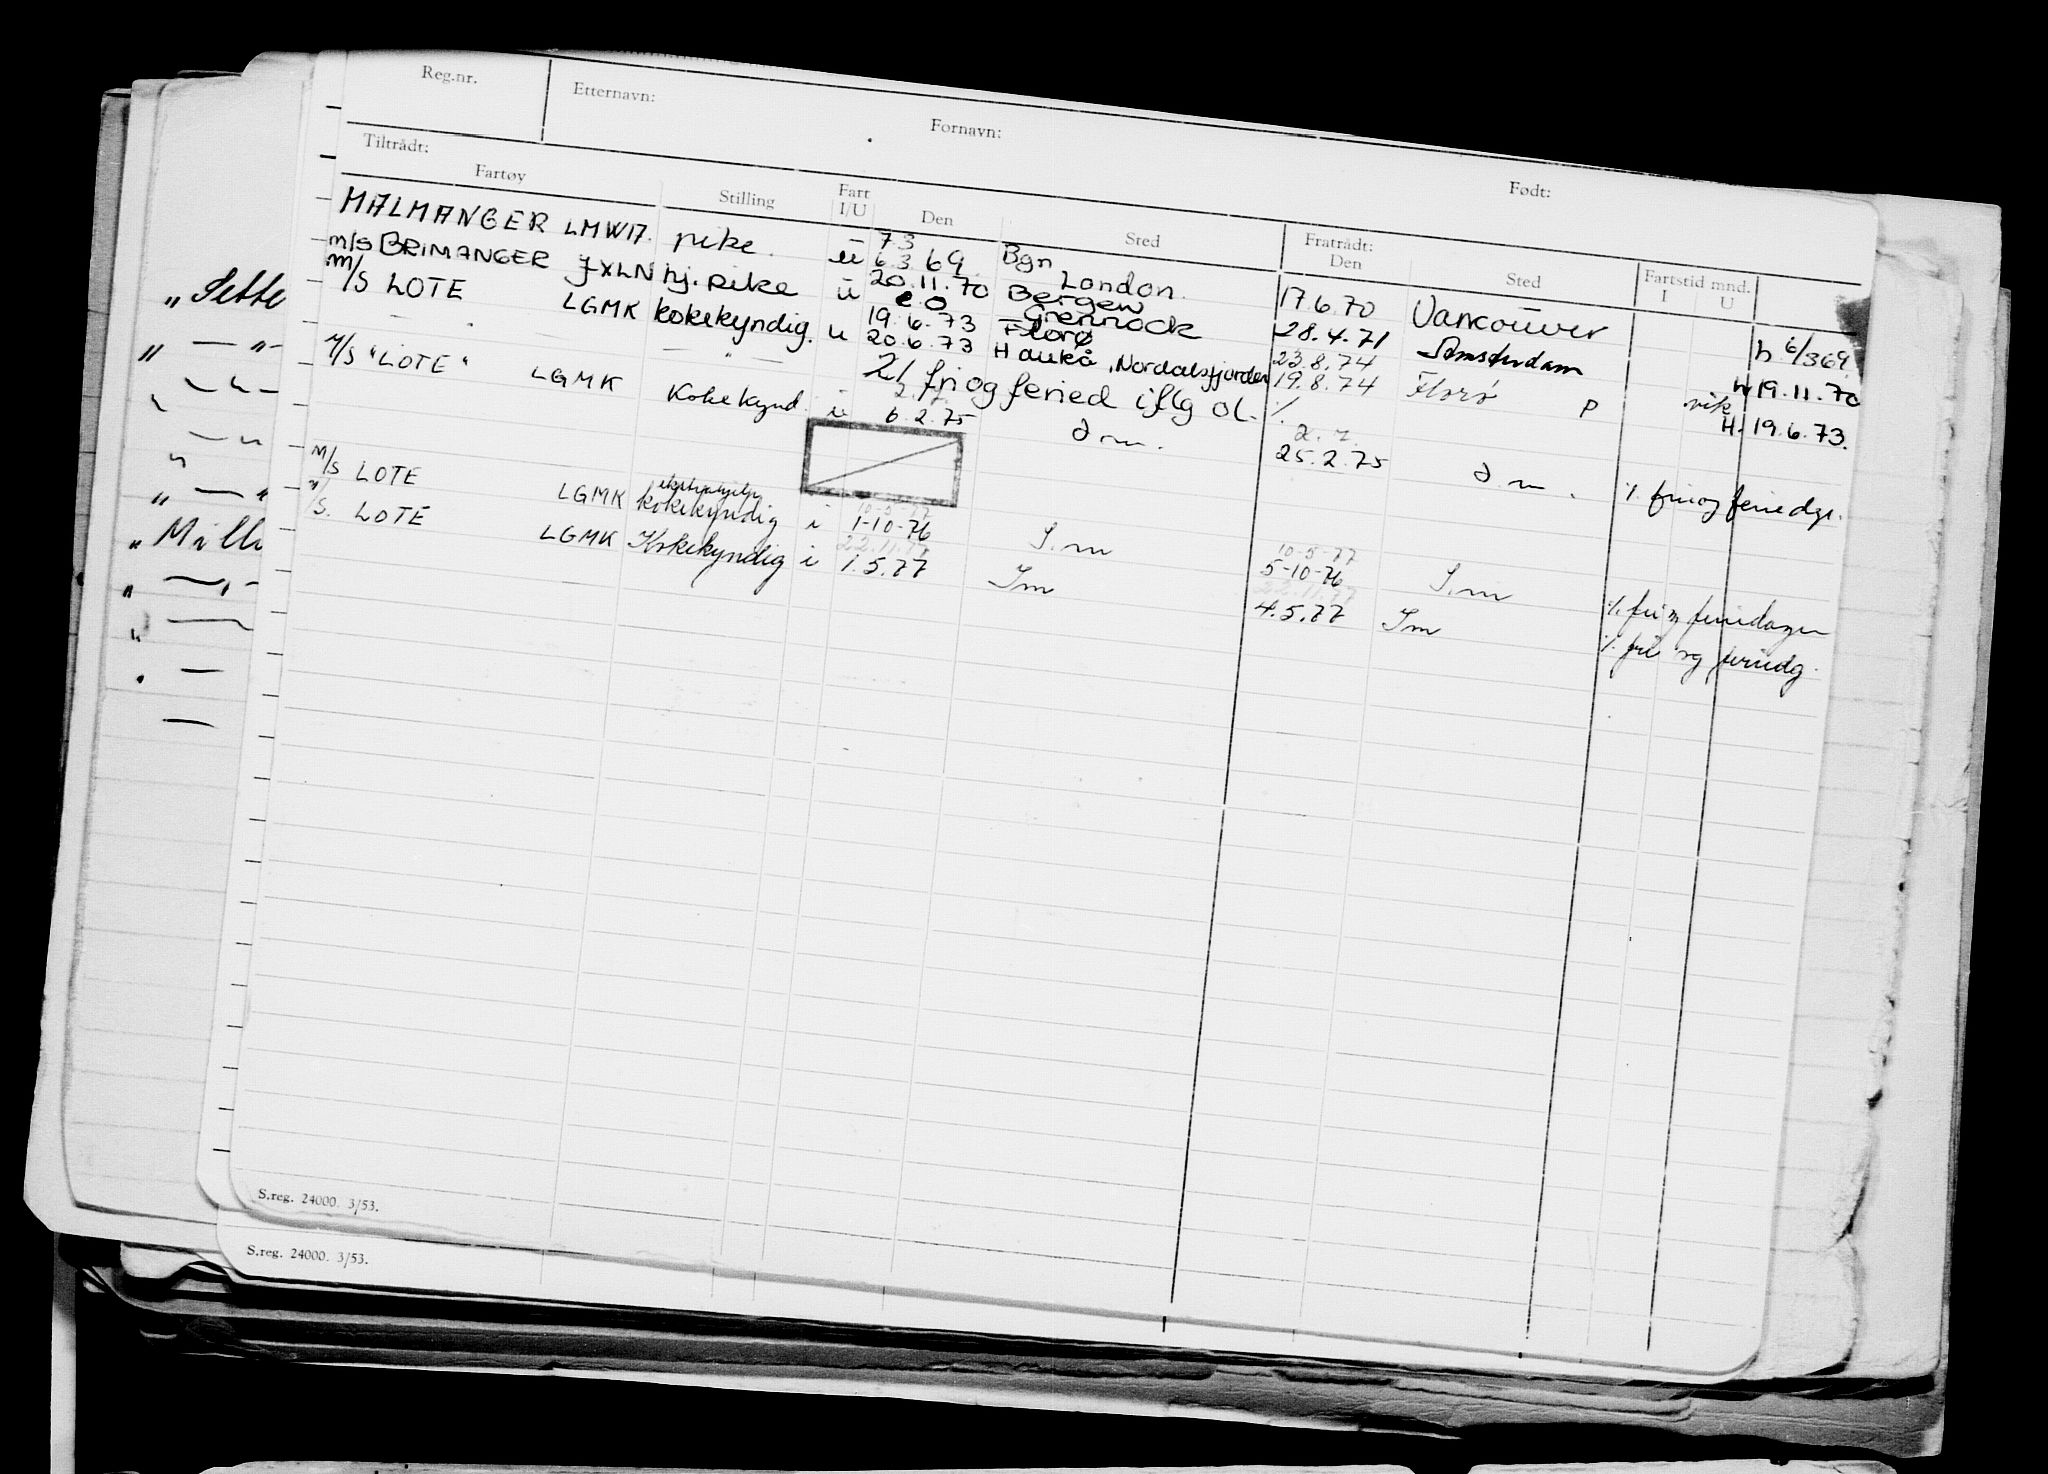 Reg.nr. Etternavn: Fornavn: Født:
Tiltrådt: Fratrådt:
Fartøy Stilling Fart I/U Den Sted Den Sted Fartstid mnd. I U
MALMANGER LMWI7. pike. u 7.3 6.3.69 Bgn London. 17.6.70 Vancouver h 6/369
m/s BRIMANGER JXLN hj. pike u 20.11.70 Bergen Grennock 28.4.71 Amsterdam h 19.11.70
m/s LOTE LGMK kokekyndig. u 19.6.73 Florø 23.8.74 H. 19.6.73.
— " — 20.6.73 Haukå, Nordalsfjorden 19.8.74 Florø P vik
2/ fri og feried iflg ol.
M/S "LOTE" LGMK Kokekynd. i 6.2.75 25.2.75 /. fri og feriedgr.
m/s LOTE LGMK kokekyndig i 10-5-77 1-10-76 S.m 10-5-77 5-10-76 S.m /. fri og feriedager
m/s. LOTE LGMK Kokekyndig i 22.11.77 1.5.77 Sm 22.11.77 4.5.77 Sm /. fri og feriedg.
„ Sette
„ — „ —
„ — „
„ Mille
S.reg. 24000. 3/53.
S.reg. 24000. 3/53.